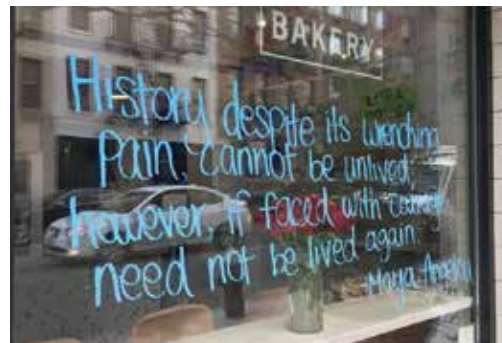 BAKERY
History despite its wrenching
Pain, cannot be unlived,
however, if faced with courage
need not be lived again.
-Maya Angelou